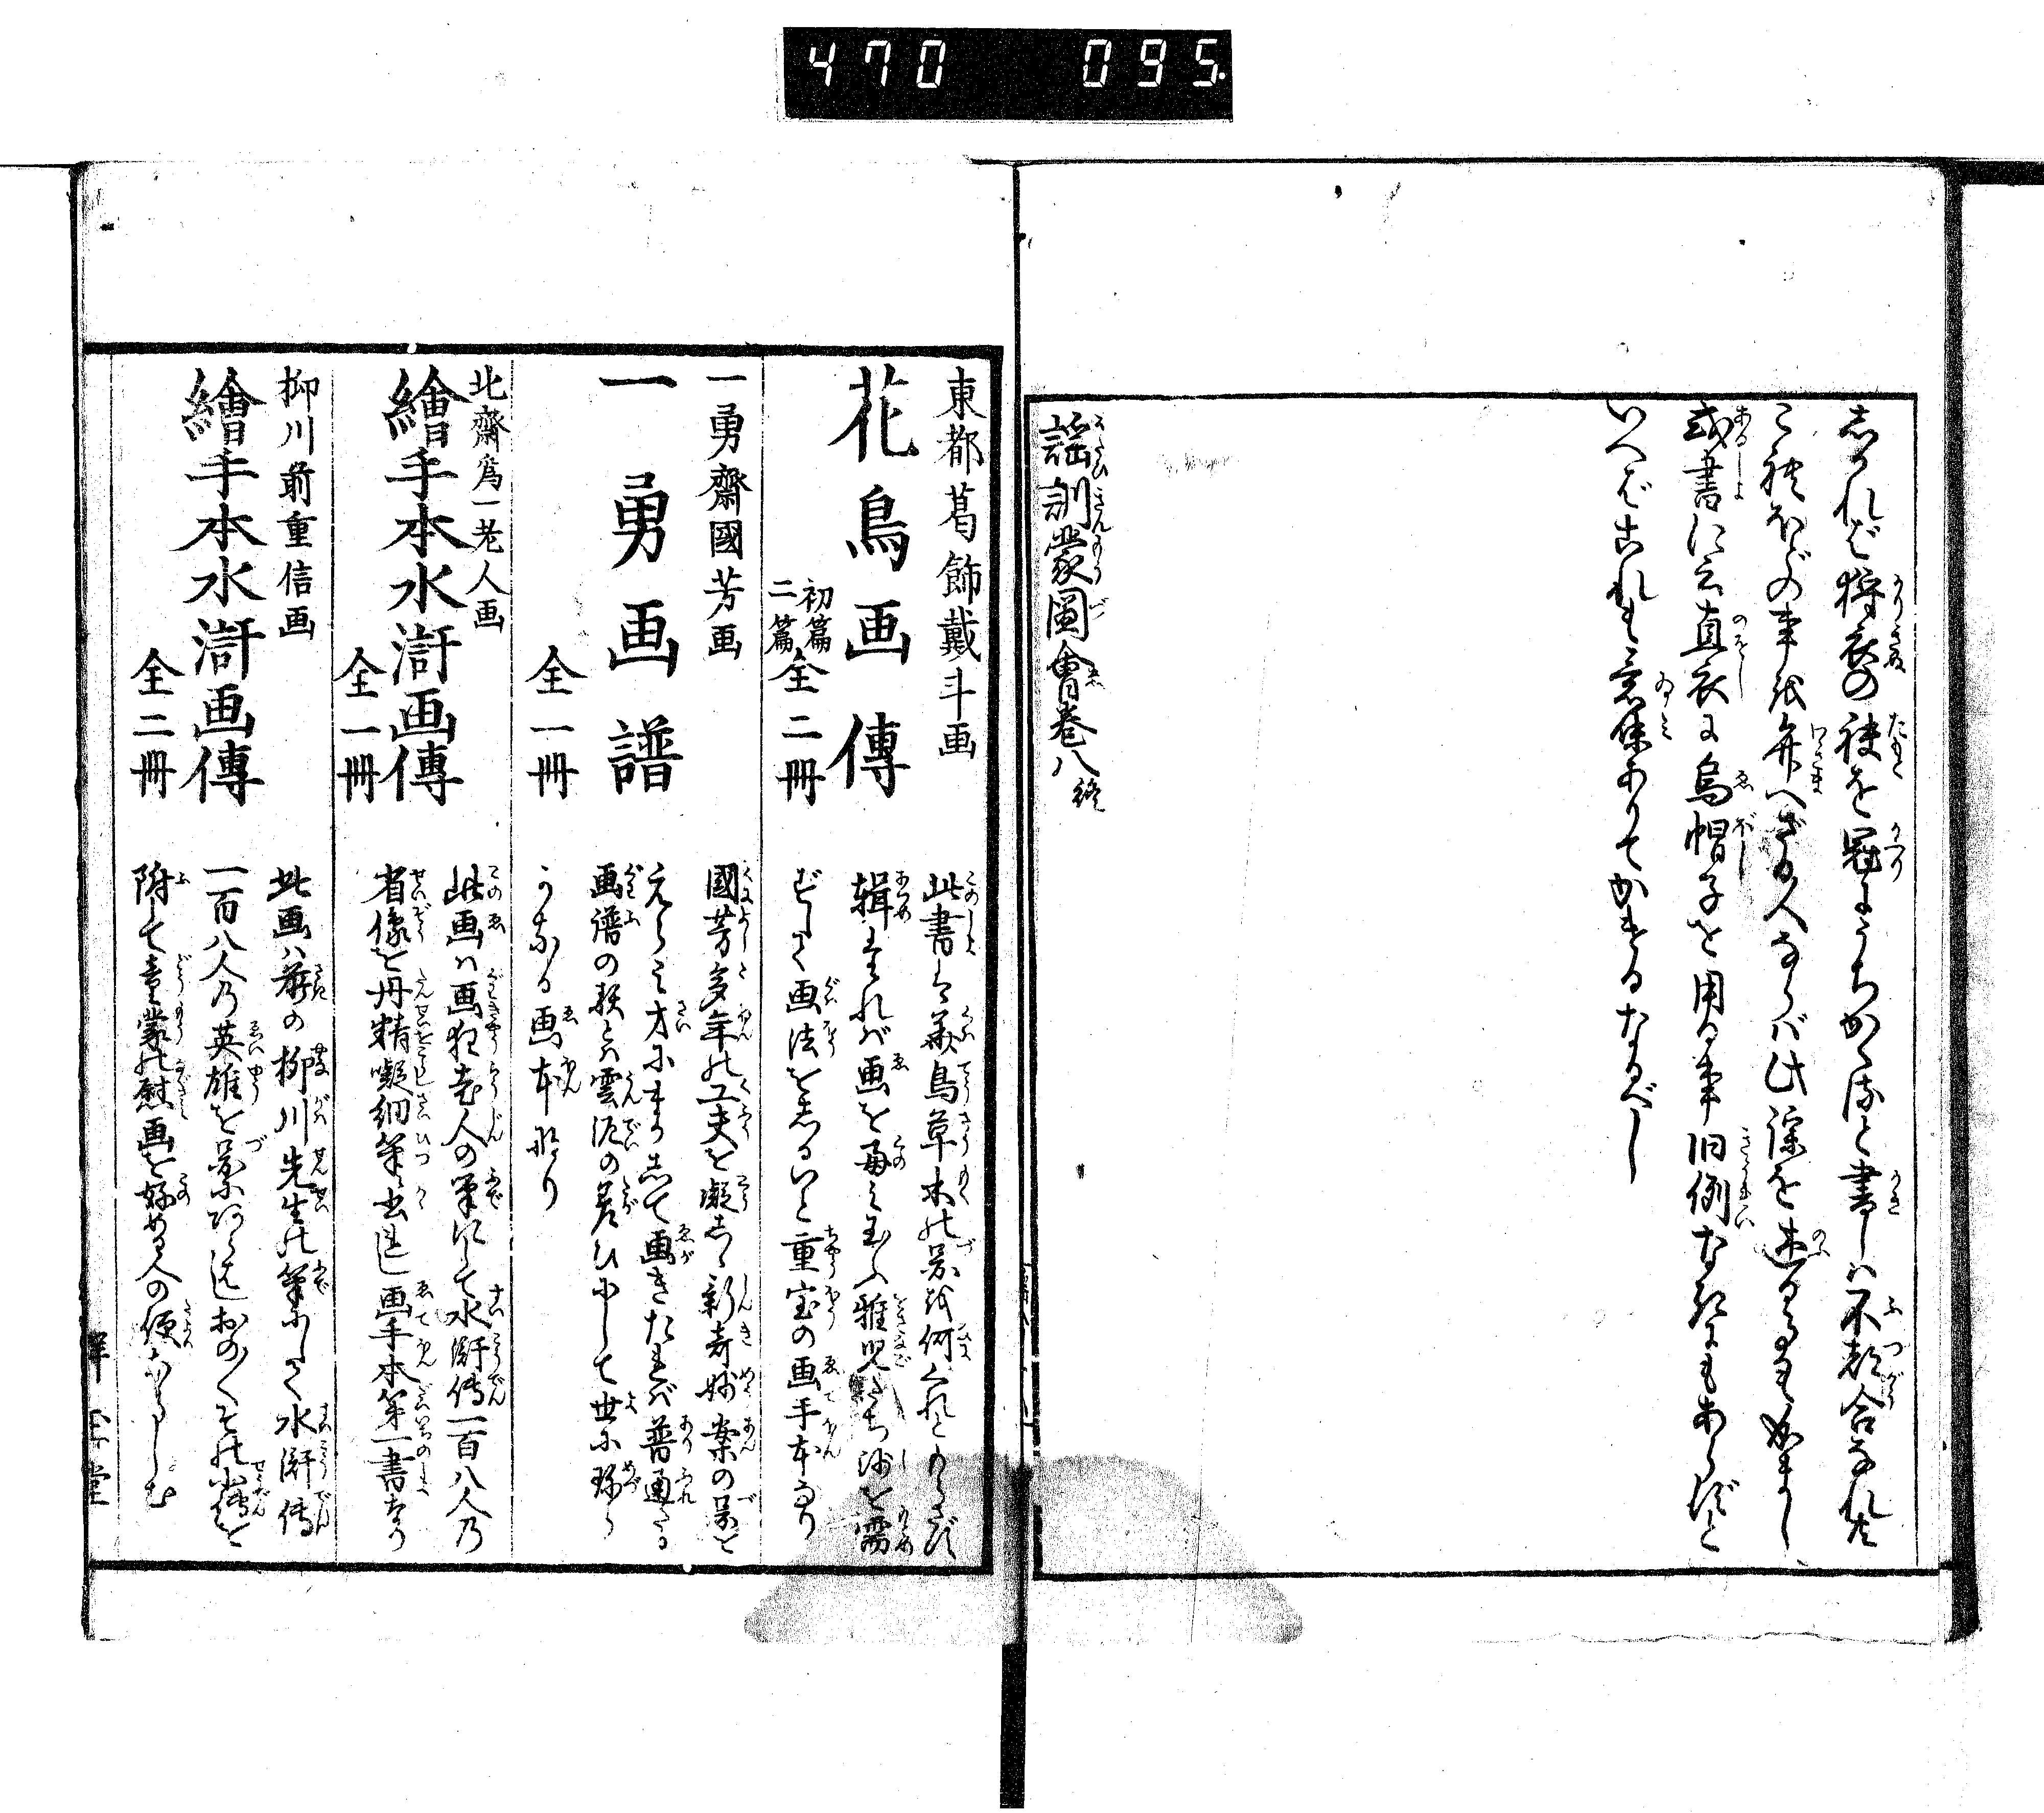 470 095
しかれば狩衣の袂を冠にうちかくると書しハ不都合なれ共
これほどの事を弁へざる人ならバ此謡を述るにも及まし
或書に云直衣に烏帽子を用る事旧例なきにもあらずと
いへばこれも意味ありてかきるなるべし
謡訓蒙圖會巻八終
東都葛飾戴斗画
花鳥画傳
初篇
二篇
全二冊
此書は花鳥草木の圖を何くれともらさず
輯たれバ画を好み玉ふ雅児たち机を需
ずして画法をしるいと重宝の画手本なり
一勇齋國芳画
一勇画譜
全一冊
國芳多年の工夫を凝し新奇妙案の圖を
えらみ才にまかして画きたれバ普通たる
画譜の類とハ雲泥の差ひにして世に珍ら
かなる画本なり
北齋爲一老人画
繪手本水滸画傳
全一冊
此画ハ画狂老人の筆にて水滸傳一百八人乃
省像を丹精凝細筆書画し画手本第一書なり
柳川前重信画
繪手本水滸画傳
全二冊
此画ハ前の柳川先生の筆にして水滸傳
一百八人乃英雄を圖にあらはしおのく其小傳を
附て童蒙の慰画を好める人の便ならしむ
群玉堂